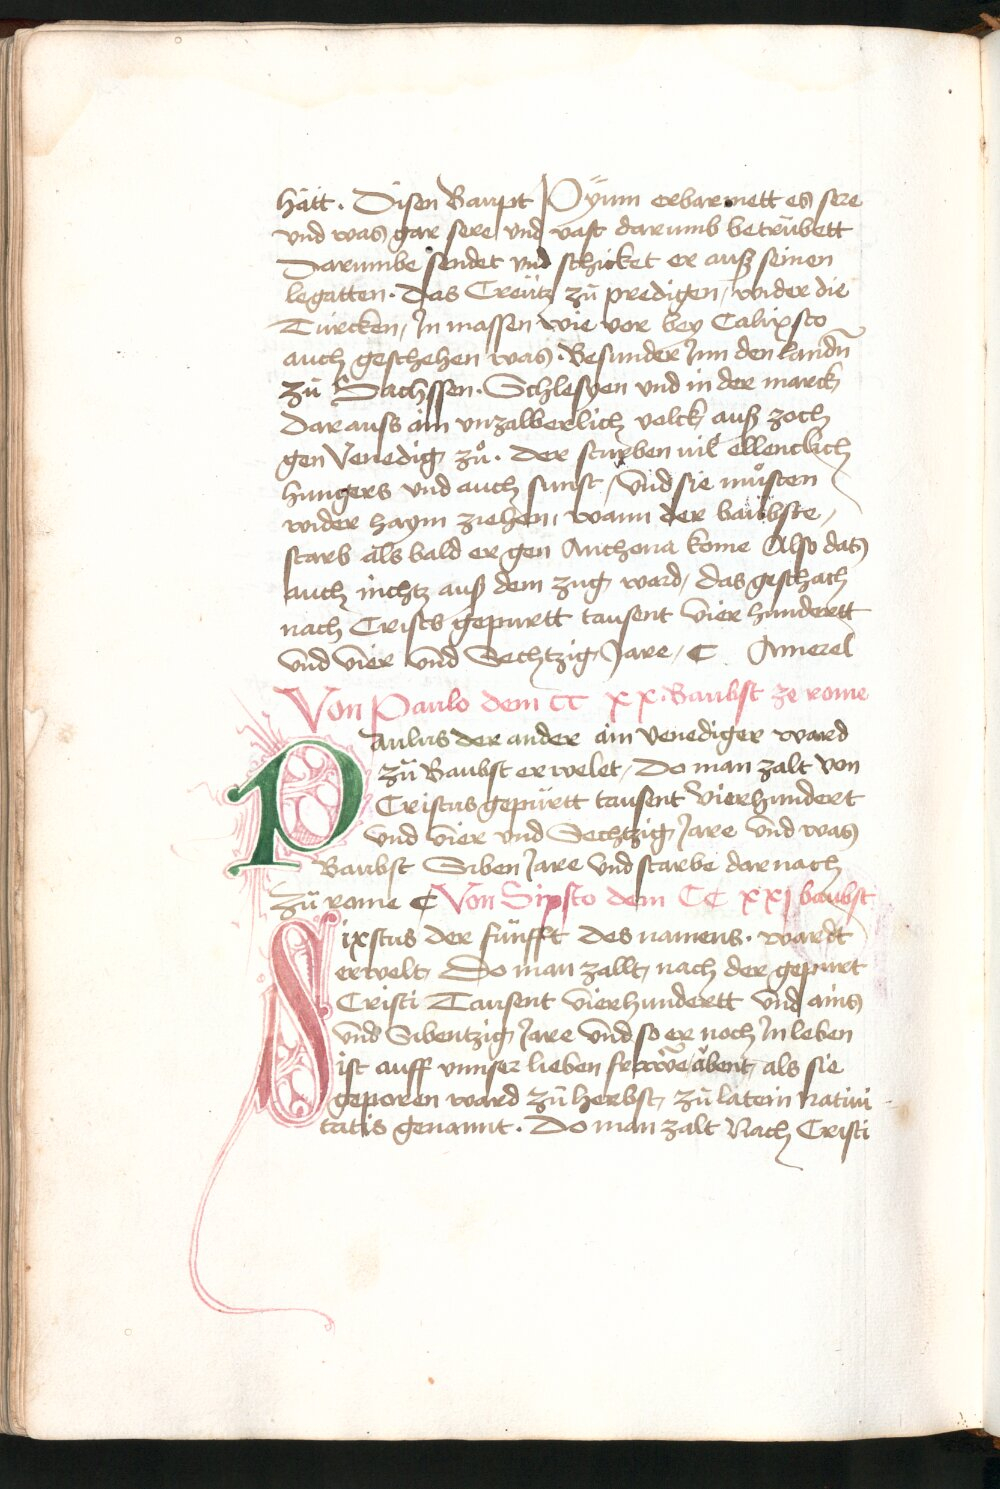 hätt. Disen Baupt Pÿum erbarmett es sere
vnd was gar sere vnd vast darumb betrübett
Darumbe sendet vnd schicket er auß seinen
legatten. Das Creütz zü predigen, wider die
Türcken, In massen wie vor bey Calixsto
auch geschehen was. Besunder Inn den landn̄
zü Sachssen. Schlesyen vnd in der marck
Darauss ain vnzalberlich volck auß zoch
gen Venedig zů. Der sturben vil ellencklich
hungers vnd auch sunst, Vnd sie můsten
wider haym ziehen, wann der baübste,
starb als bald er gen Anchona kome Also das
auch nichtz auß dem zug ward, das geschach
nach Crists gepurtt tausent Vier hundertt
Vnd Vier vnd Sechtzig Jare, C Amerel
Von Paulo dem CC xx. Baubst ze rome
Paulus der ander ain Venediger ward
zü Baubst erwelet, Do man zalt von
Cristus gepürtt tausent Vierhundert
vnd Vier vnd Sechtzig Jare Vnd was
Baubst Siben Jare Vnd starbe darnach
zü rome C Von Sixsto dem CC xxj baubst
Sixstus der fünfft des namens. wardt
erwelt, Do man zallt, nach der gepurt
Cristi Tausent Vierhundertt Vnd ains
Vnd Sibentzig Jare Vnd so er noch In leben
ist auff vnnser lieben abent, als sie
geporen ward zü herbst, zü latein Natiui
tatis genannt. Do man zalt Nach Cristi